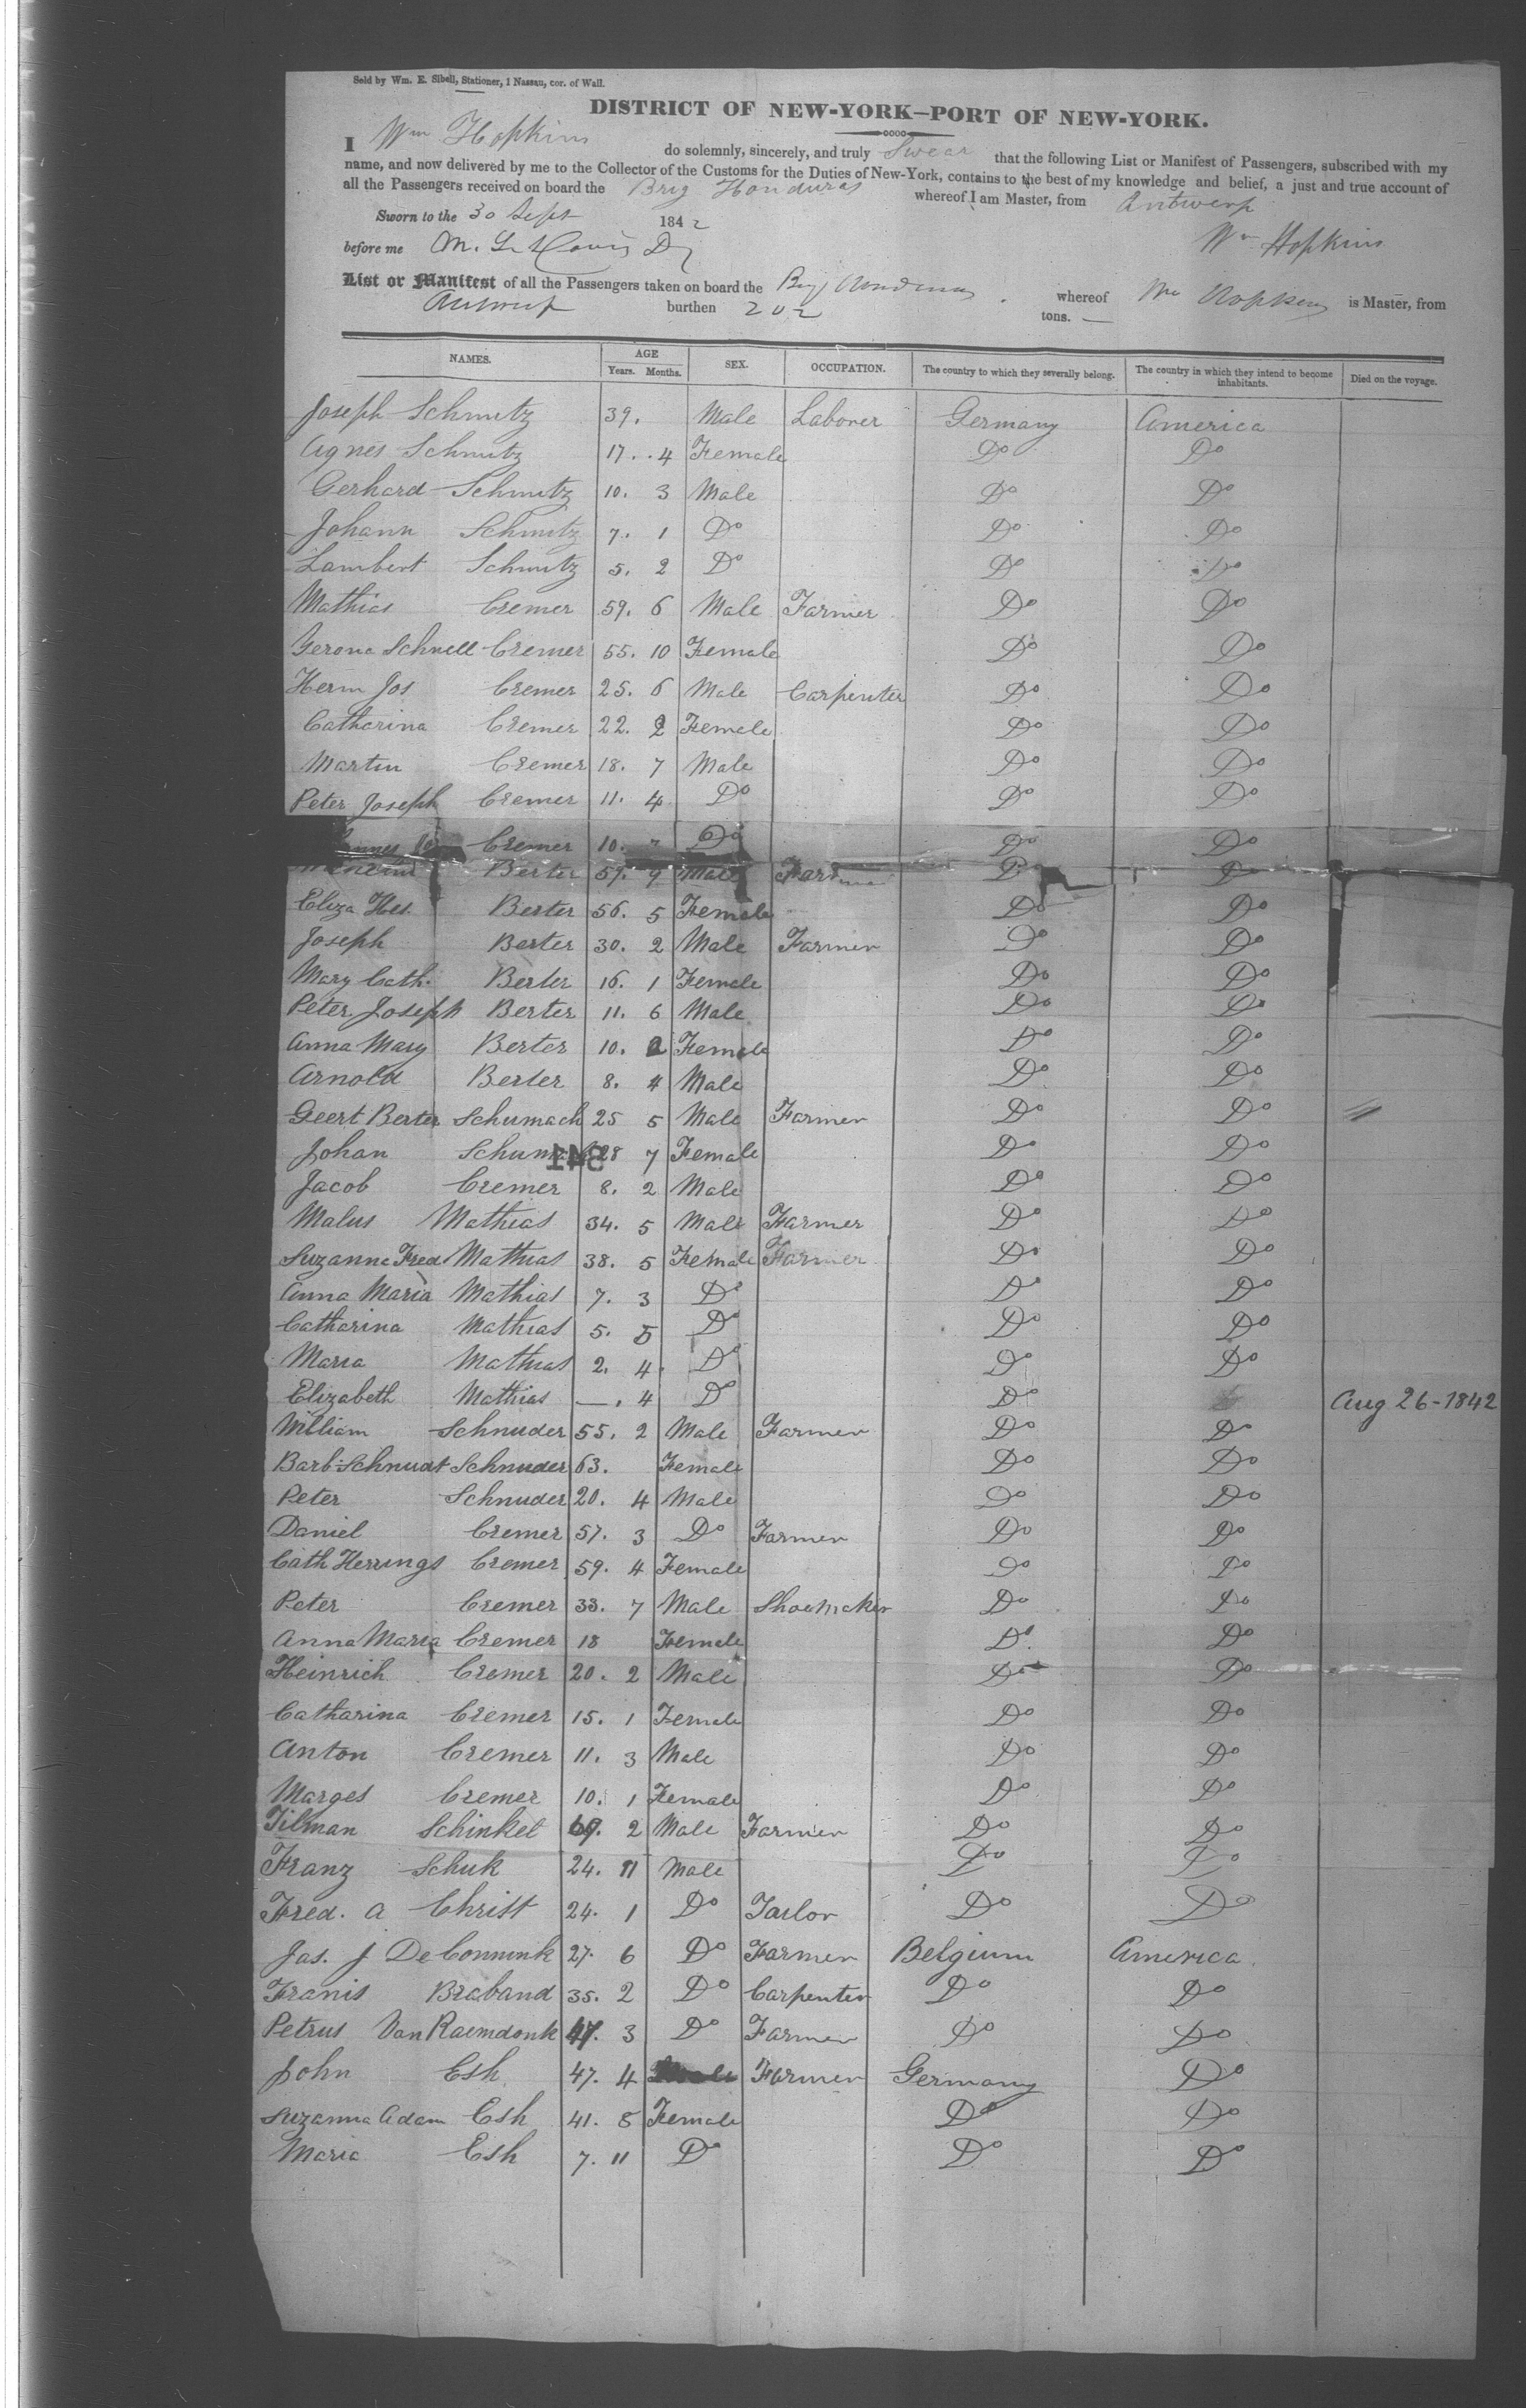 Sold by Wm. E. Sibell, Stationer, 1 Nassau, cor. of Wall.
DISTRICT OF NEW-YORK—PORT OF NEW-YORK.
I Wm Hopkins do solemnly, sincerely, and truly Swear that the following List or Manifest of Passengers, subscribed with my
name, and now delivered by me to the Collector of the Customs for the Duties of New-York, contains to the best of my knowledge and belief, a just and true account of
all the Passengers received on board the Brig Honduras whereof I am Master, from Antwerp
Sworn to the 30 Sept 1842
Wm Hopkins
before me
List or Manifest of all the Passengers taken on board the Brig Honduras whereof Wm Hopkins is Master, from
Antwerp burthen 202 tons.
NAMES. AGE Years. Months. SEX. OCCUPATION. The country to which they severally belong. The country in which they intend to become inhabitants. Died on the voyage.
Joseph Schmitz 39. Male Laborer Germany America
Agnes Schmitz 17. 4 Female Do Do
Gerhard Schmitz 10. 3 Male Do Do
Johann Schmitz 7. 1 Do Do Do
Lambert Schmitz 5. 2 Do Do Do
Mathias Cremer 59. 6 Male Farmer Do Do
Gerona Schnell Cremer 55. 10 Female Do Do
Herm Jos Cremer 25. 6 Male Carpenter Do Do
Catharina Cremer 22. 2 Female Do Do
Martin Cremer 18. 7 Male Do Do
Peter Joseph Cremer 11. 4 Do Do Do
Cremer 10. Do Do Do
Berter 57. 9 Male Farmer Do Do
Eliza Hes. Berter 56. 5 Female Do Do
Joseph Berter 30. 2 Male Farmer Do Do
Mary Cath. Berter 16. 1 Female Do Do
Peter Joseph Berter 11. 6 Male Do Do
Anna Mary Berter 10. 2 Female Do Do
Arnold Berter 8. 4 Male Do Do
Geert Berter Schumach 25 5 Male Farmer Do Do
Johan Schumach 28 7 Female Do Do
Jacob Cremer 8. 2 Male Do Do
Malus Mathias 34. 5 Male Farmer Do Do
Suzanna Fred Mathias 38. 5 Female Farmer Do Do
Anna Maria Mathias 7. 3 Do Do Do
Catharina Mathias 5. 5 Do Do Do
Maria Mathias 2. 4. Do Do Do
Elizabeth Mathias —. 4 Do Do Aug 26-1842
William Schnuder 55. 2 Male Farmer Do Do
Barb. Schnudt Schnuder 63. Female Do Do
Peter Schnuder 20. 4 Male Do Do
Daniel Cremer 57. 3 Do Farmer Do Do
Cath Herrings Cremer 59. 4 Female Do Do
Peter Cremer 33. 7 Male Shoemaker Do Do
Anna Maria Cremer 18 Female Do Do
Heinrich Cremer 20. 2 Male Do Do
Catharina Cremer 15. 1 Female Do Do
Anton Cremer 11. 3 Male Do Do
Marges Cremer 10. 1 Female Do Do
Tilman Schinkel 69. 2 Male Farmer Do Do
Franz Schuk 24. 11 Male Do Do
Fred. A Christ 24. 1 Do Tailor Do Do
Jas. J De Connink 27. 6 Do Farmer Belgium America
Franis Braband 35. 2 Do Carpenter Do Do
Petrus Van Raemdonk 47. 3 Do Farmer Do Do
John Esh 47. 4 Farmer Germany Do
Suzanna Adam Esh 41. 8 Female Do Do
Maria Esh 7. 11 Do Do Do